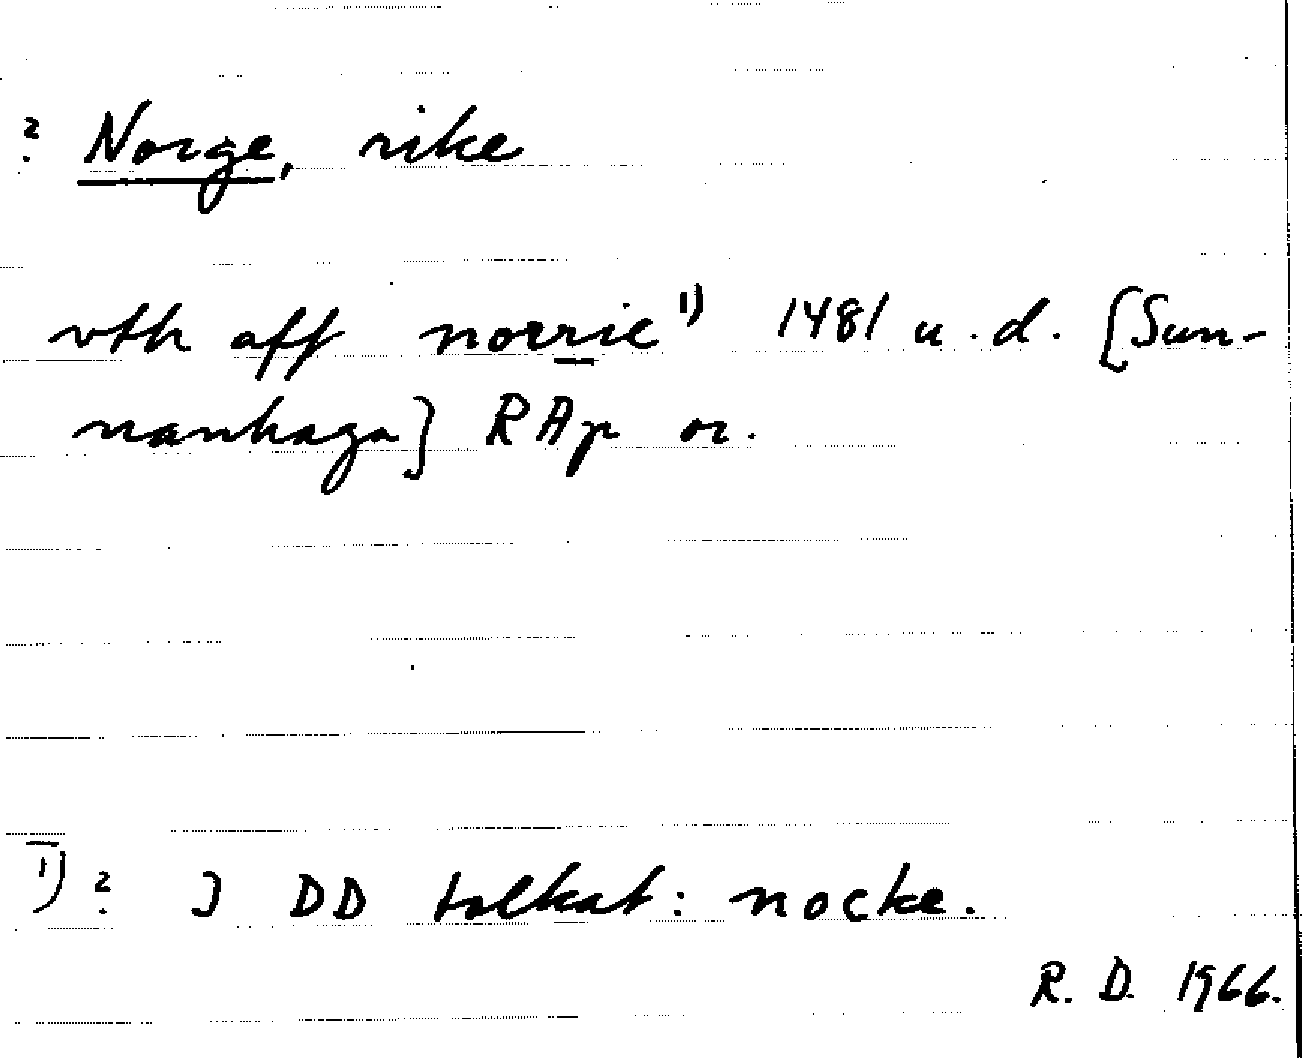 ? Norge, rike
vth aff norrie 1) 1481 u.d. [Sun-
nanhaga] RAp or.
1) ? I DD tolkat: nocke.
R. D. 1966.